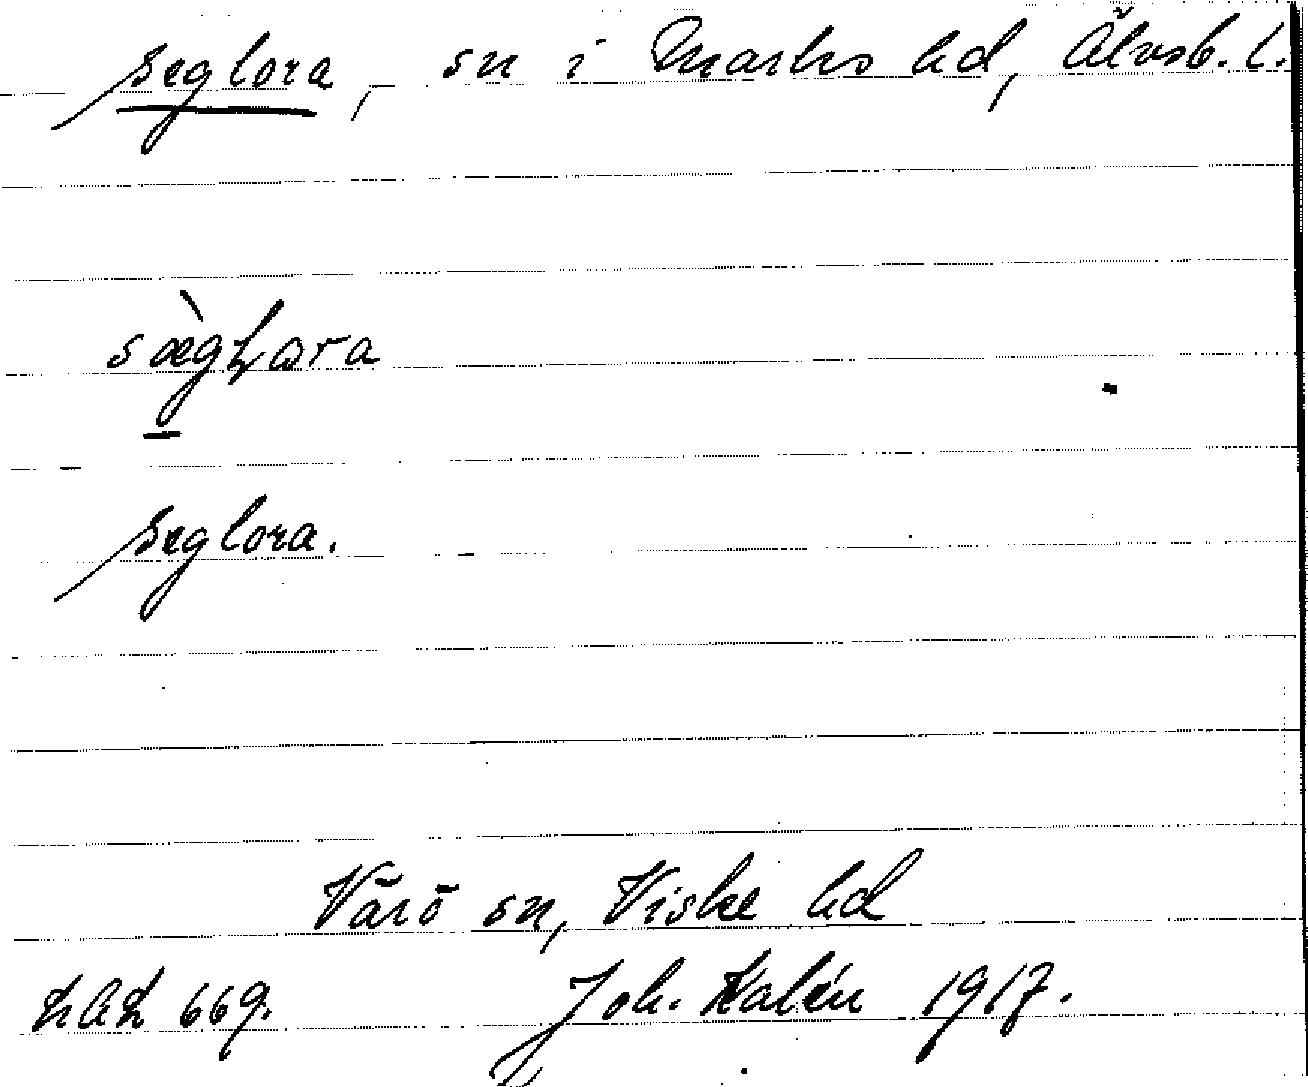 Seglora, sn i Marks hd, Älvsb. l.
Seglora.
Värö sn, Viske hd
669. Joh. Kalén 1917.